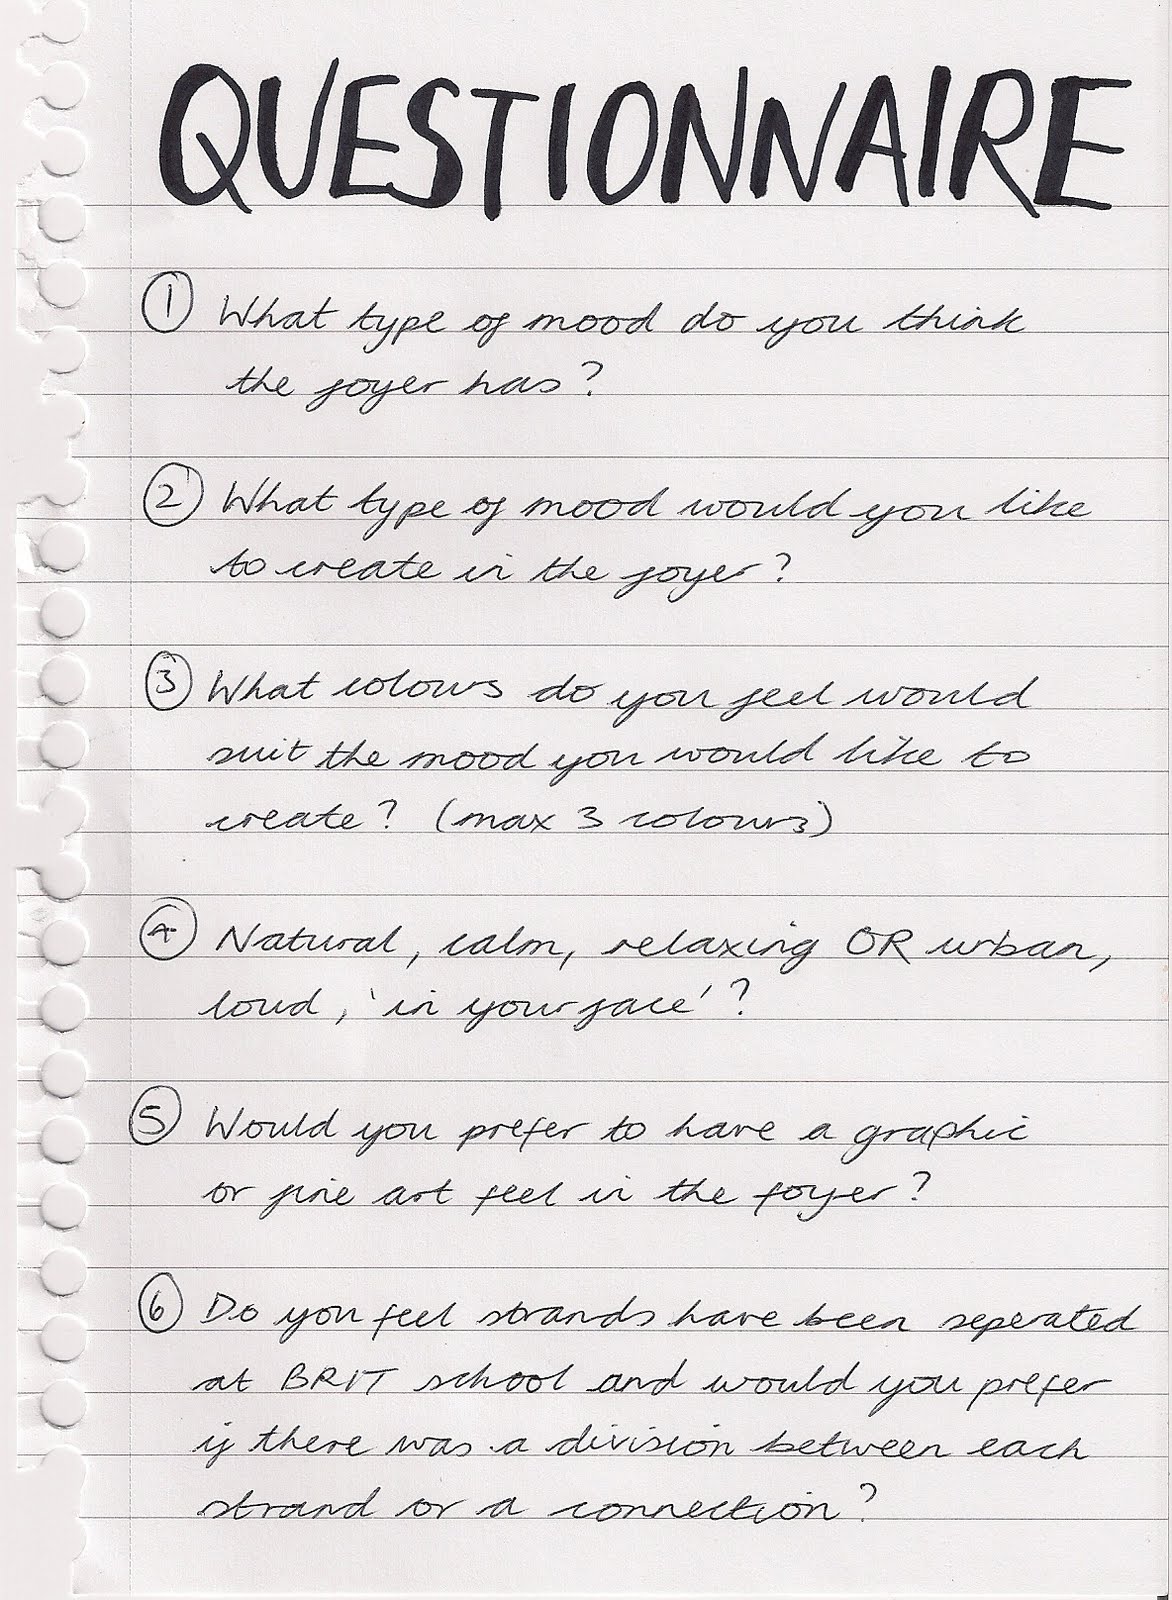 QUESTIONNAIRE
① What type of mood do you think
the foyer has?
② What type of mood would you like
to create in the foyer?
③ What colours do you feel would
suit the mood you would like to
create? (max 3 colours)
④ Natural, calm, relaxing OR urban,
loud, 'in your face'?
⑤ Would you prefer to have a graphic
or fine art feel in the foyer?
⑥ Do you feel strands have been seperated
at BRIT school and would you prefer
if there was a division between each
strand or a connection?